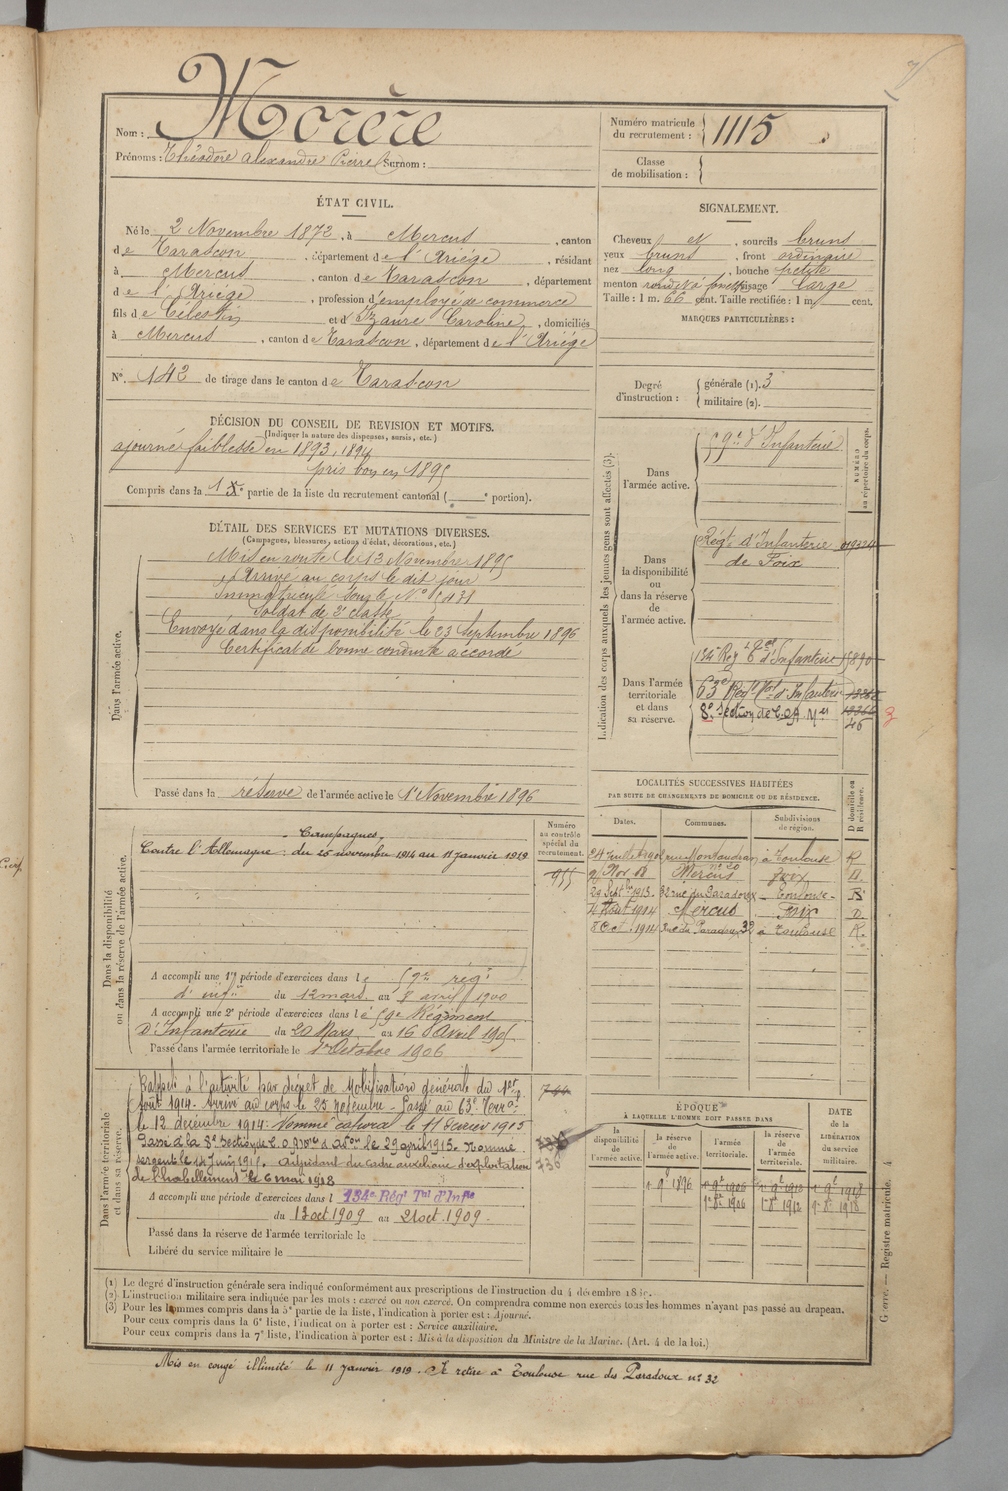 Nom : Morère
Prénoms : Théodore Alexandre Pierre Surnom :
Numéro matricule du recrutement : 1115
Classe de mobilisation :
ÉTAT CIVIL.
Né le 2 Novembre 1872, à Mercus, canton
de Tarascon, département de l'Ariége, résidant
à Mercus, canton de Tarascon, département
de l'Ariége, profession d'employé de commerce
fils de Célestin et d' Izaure Caroline, domiciliés
à Mercus, canton de Tarascon, département de l'Ariége
N°. 142 de tirage dans le canton de Tarascon
SIGNALEMENT.
Cheveux et, sourcils bruns
yeux bruns, front ordinaire
nez long, bouche petite
menton rond visage large
Taille : 1 m. 66 cent. Taille rectifiée : 1 m. cent.
MARQUES PARTICULIÈRES :
Degré d'instruction : générale (1). 3
militaire (2).
DÉCISION DU CONSEIL DE REVISION ET MOTIFS.
(Indiquer la nature des dispenses, sursis, etc.)
ajourné faiblesse en 1893, 1894
pris bon en 1895
Compris dans la 1e partie de la liste du recrutement cantonal ( e portion).
DÉTAIL DES SERVICES ET MUTATIONS DIVERSES.
(Campagnes, blessures, actions d'éclat, décorations, etc.)
Dans l'armée active.
Mis en route le 13 Novembre 1895
Arrivé au corps le dit jour
Immatriculé sous le N° 5431
Soldat de 2e classe
Envoyé dans la disponibilité le 23 Septembre 1896
Certificat de bonne conduite accordé
Passé dans la réserve de l'armée active le 1er Novembre 1896
Indication des corps auxquels les jeunes gens sont affectés (3).
NUMÉRO au répertoire du corps.
Dans l'armée active.
59e d'Infanterie
Dans la disponibilité ou dans la réserve de l'armée active.
Régt d'Infanterie
de Foix
Dans l'armée territoriale et dans sa réserve.
134e Reg t Tal d'Infanterie 15890
63e Régt Tal d'Infanterie
8e Section de C.O.A. 46
3
LOCALITÉS SUCCESSIVES HABITÉES
PAR SUITE DE CHANGEMENTS DE DOMICILE OU DE RÉSIDENCE.
Dates. Communes. Subdivisions de région. D domicile ou R résidence.
rue Montaudran à Toulouse R
9 Nov 08 Mercus Foix D.
29 Septbre 1913. 32 rue du Paradoux Toulouse R
4 Août 1914 Mercus Foix D.
8 Oct. 1914 Rue du Paradoux 32 à Toulouse R.
Dans la disponibilité ou dans la réserve de l'armée active.
Numéro au contrôle spécial du recrutement.
955
Campagnes.
Contre l'Allemagne : du 25 novembre 1914 au 11 janvier 1919
A accompli une 1re période d'exercices dans le 59e régt
d'infie du 12 mars au 8 avril 1900
A accompli une 2e période d'exercices dans le 59e Régiment
D'Infanterie du 20 Mars au 16 Avril 1905
Passé dans l'armée territoriale le 1er Octobre 1906
Dans l'armée territoriale et dans sa réserve.
Rappelé à l'activité par décret de Mobilisation générale du 1er
Août 1914. Arrivé au corps le 25 novembre. Passé au 63e Terral
le 12 décembre 1914. Nommé caporal le 11 Février 1915
Passé à la 8e Section de C.O. le 29 avril 1915. Nommé
sergent le 14 Juin 1915. Adjudant du cadre auxiliaire d'exploitation
de l'habillement le 6 mai 1918
736
A accompli une période d'exercices dans l 134e Régt Tal d'Infie
du 13 oct 1909 au 21 oct. 1909.
Passé dans la réserve de l'armée territoriale le
Libéré du service militaire le
ÉPOQUE
À LAQUELLE L'HOMME DOIT PASSER DANS
DATE DE LA LIBÉRATION du service militaire.
la disponibilité de l'armée active. la réserve de l'armée active. l'armée territoriale. la réserve de l'armée territoriale.
1er 9bre 1896 1er 9bre 1906 1er 9bre 1912 1er 9bre 1918
1er 8bre 1906 1er 8bre 1912 1er 8bre 1918
(1) Le degré d'instruction générale sera indiqué conformément aux prescriptions de l'instruction du 4 décembre
(2) L'instruction militaire sera indiquée par les mots : exercé ou non exercé. On comprendra comme non exercés tous les hommes n'ayant pas passé au drapeau.
(3) Pour les hommes compris dans la 5e partie de la liste, l'indication à porter est : Ajourné.
Pour ceux compris dans la 6e liste, l'indication à porter est : Service auxiliaire.
Pour ceux compris dans la 7e liste, l'indication à porter est : Mis à la disposition du Ministre de la Marine. (Art. 4 de la loi.)
Guerre. — Registre matricule. 4
Mis en congé illimité le 11 janvier 1919. Se retire à Toulouse rue des Paradoux n° 32